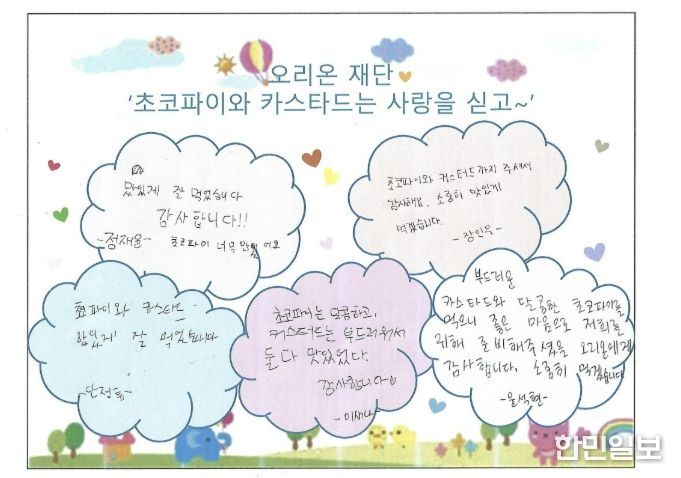 오리온 재단
'초코파이와 카스타드는 사랑을 싣고~'
맛있게 잘 먹었습니다
감사합니다!!
-정재울- 초코파이 너무 맛있어요
초코파이와 커스터드까지 주셔서
감사해요. 소중히 맛있게
먹겠습니다.
-장인우-
초코파이와 카스타드
맛있게 잘 먹었습니다
초코파이는 달콤하고,
커스터드는 부드러워서
둘다 맛있었다.
감사합니다
부드러운
카스타드와 달콤한 초코파이를
먹으니 좋은 마음으로 저희를
위해 준비해주셨을 오리온에게
감사합니다. 소중히 먹겠습니다
-윤석현-
한민일보